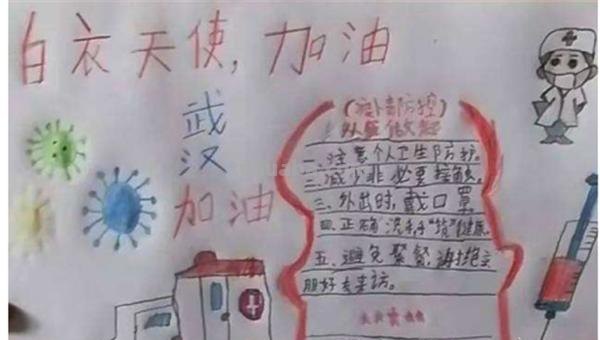 白衣天使,加油
武汉
加油
从我做起
一、注意个人卫生防护。
二、减少非必要接触。
三、外出时,戴口罩
四、正确洗手"筑"健康
五、避免聚餐,谢绝亲
朋好友来访。